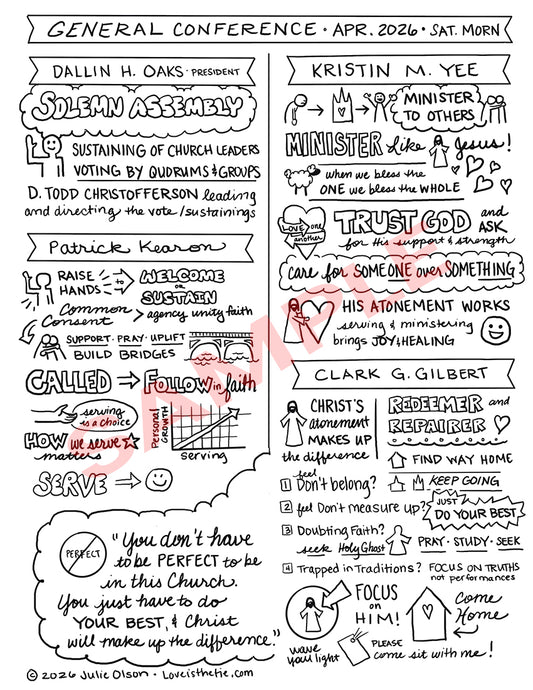 GENERAL CONFERENCE • APR. 2026 • SAT. MORN
DALLIN H. OAKS • PRESIDENT
SOLEMN ASSEMBLY
SUSTAINING OF CHURCH LEADERS
VOTING BY QUORUMS & GROUPS
D. TODD CHRISTOFFERSON leading
and directing the vote/sustainings
Patrick Kearon
RAISE
HANDS
to
WELCOME
or
SUSTAIN
Common
Consent
agency unity faith
SUPPORT • PRAY • UPLIFT
BUILD BRIDGES
CALLED
FOLLOW in faith
serving
is a choice
HOW we serve
matters
Personal
GROWTH
serving
SERVE
PERFECT
"You don't have
to be PERFECT to be
in this Church.
You just have to do
YOUR BEST, & Christ
will make up the difference."
© 2026 Julie Olson • Loveisthetic.com
KRISTIN M. YEE
MINISTER
TO OTHERS
MINISTER like Jesus!
when we bless the
ONE we bless the WHOLE
LOVE one
another
TRUST GOD and
ASK
for His support & strength
care for SOMEONE over SOMETHING
HIS ATONEMENT WORKS
serving & ministering
brings JOY & HEALING
CLARK G. GILBERT
CHRIST'S
atonement
MAKES UP
the difference
REDEEMER and
REPAIRER
FIND WAY HOME
feel
1 Don't belong?
KEEP GOING
2 feel Don't measure up?
JUST
DO YOUR BEST
3 Doubting Faith?
seek Holy Ghost
PRAY • STUDY • SEEK
4 Trapped in Traditions?
FOCUS ON TRUTHS
not performances
FOCUS
on
HIM!
Come
Home
wave
your light
PLEASE
come sit with me!
SAMPLE